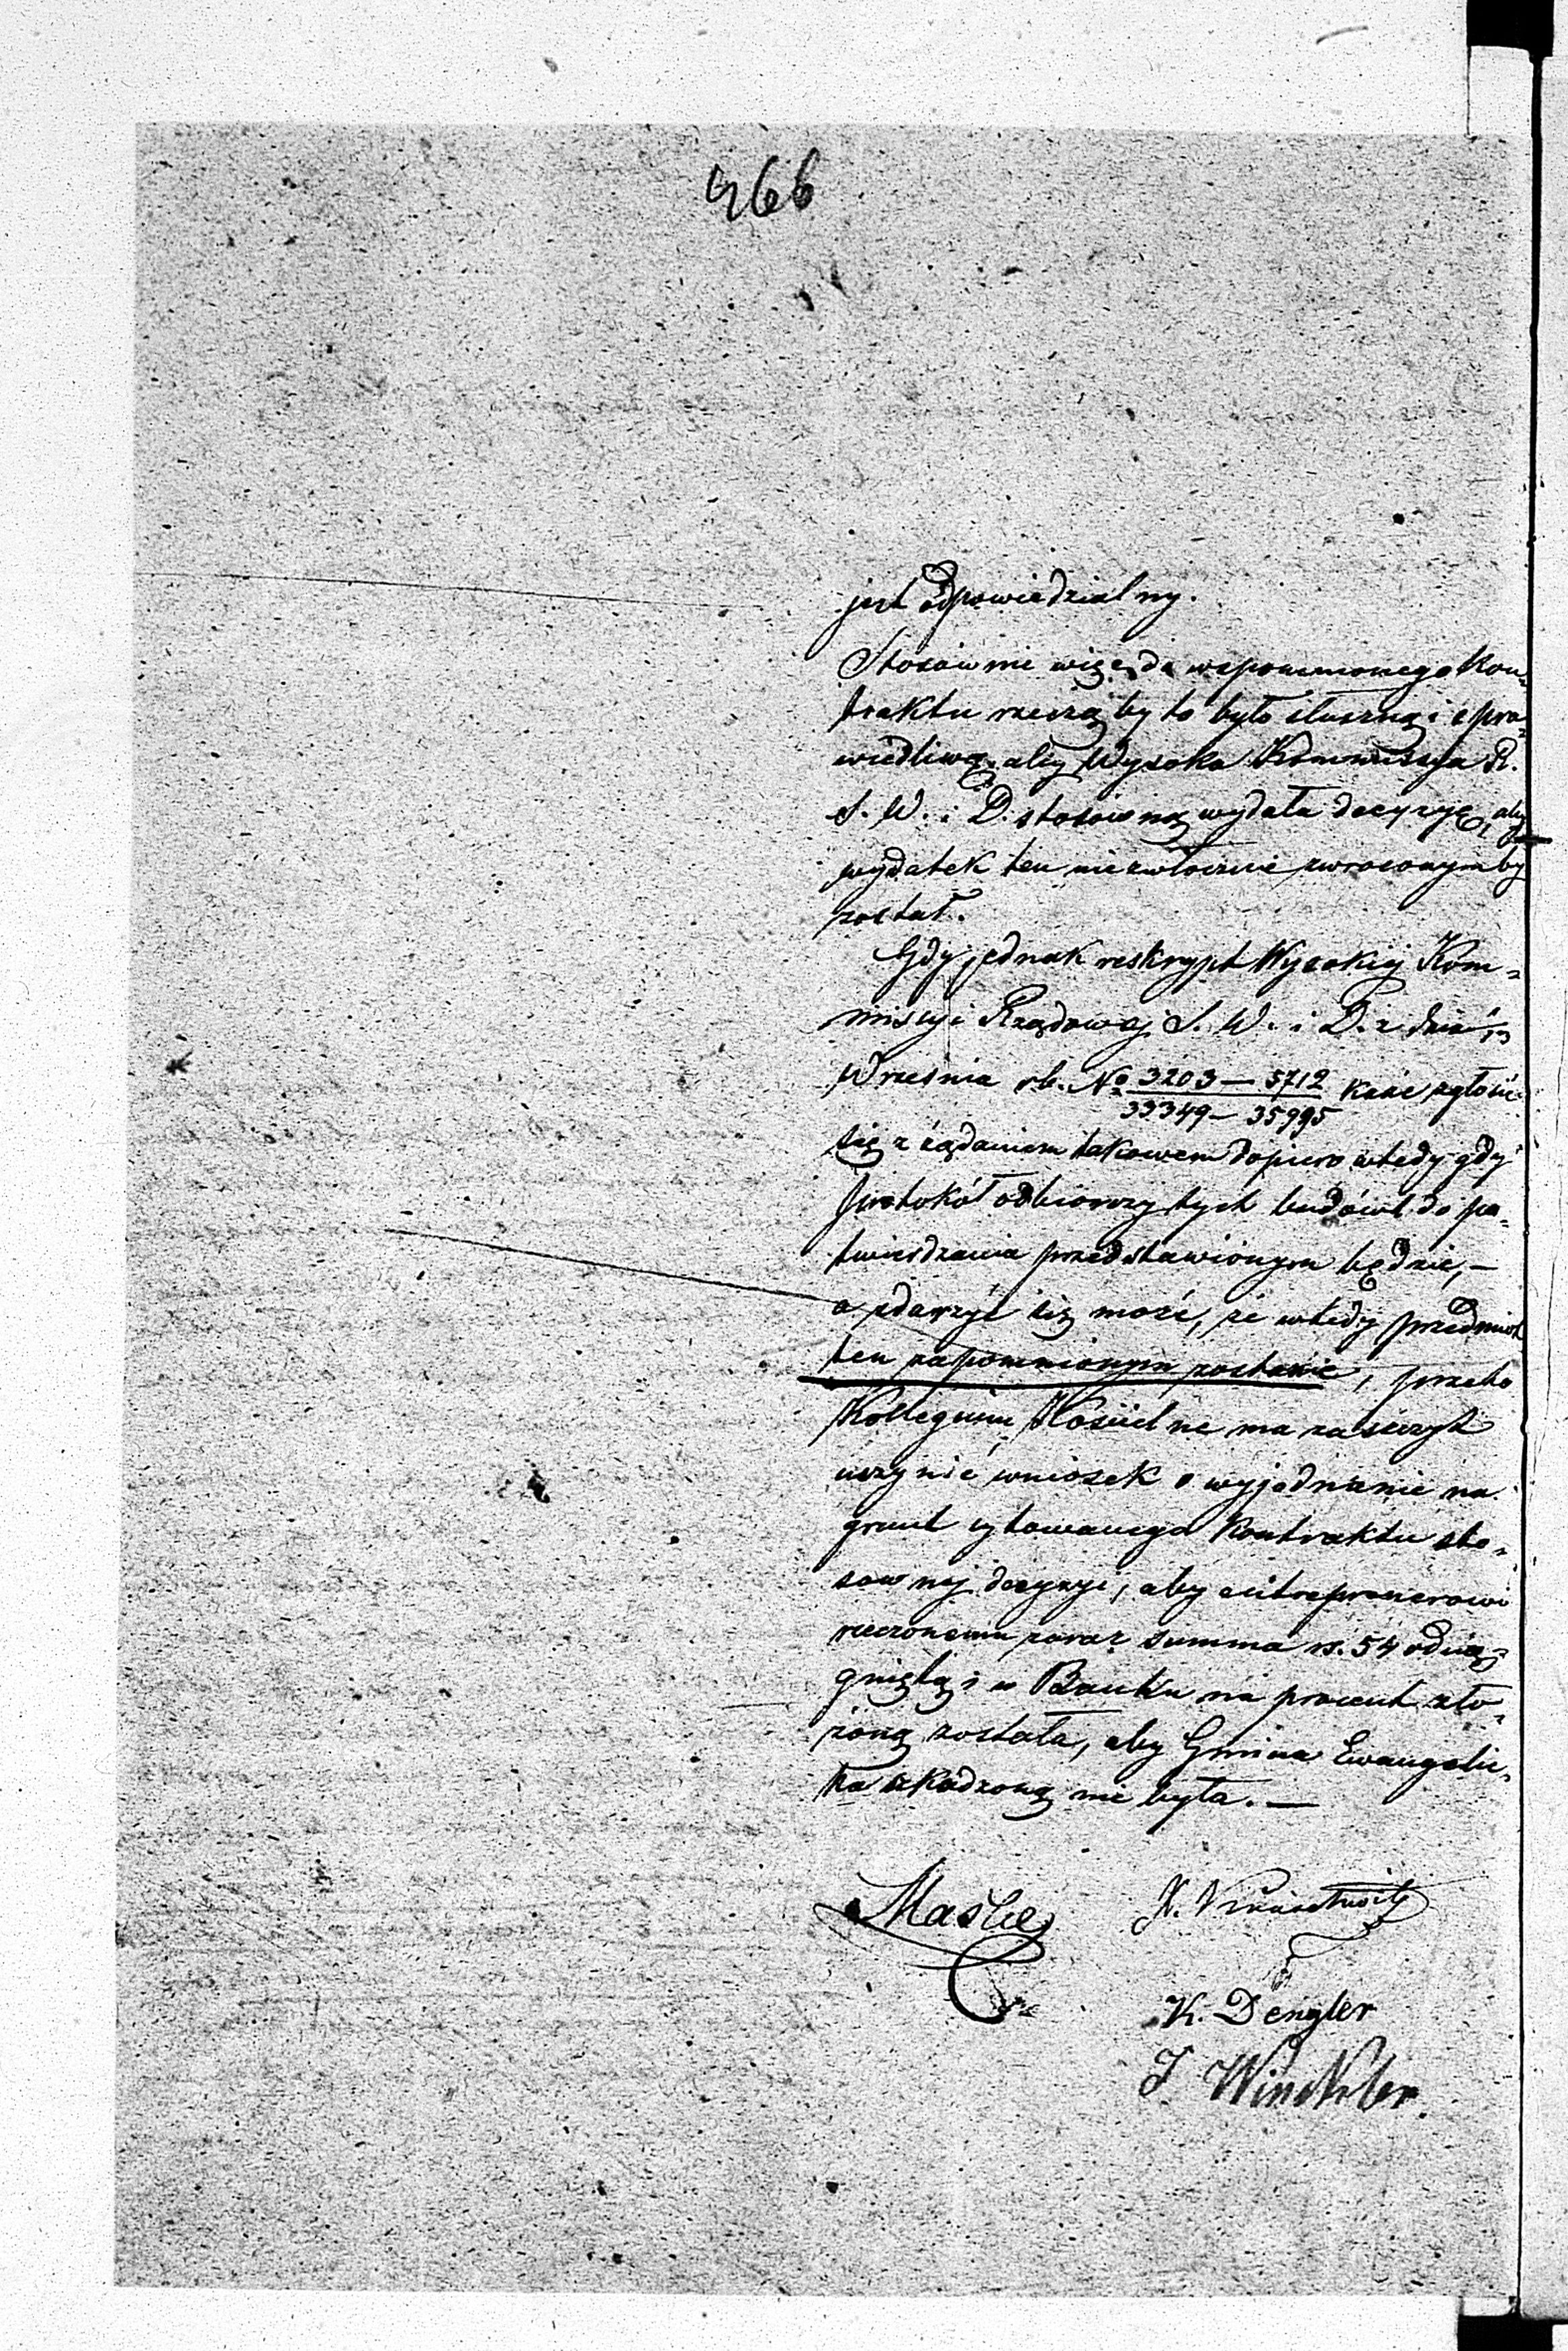 466
jest odpowiedzialny.
Stosównie więc do wspomnionego Kon-
traktu rzeczą by to było słuszną i spra-
wiedliwą, aby Wysoka Kommissya R.
S. W. i D. stosówną wydała decyzyę, aby
wydatek ten niezwłocznie zwroconym by
został.
Gdy jednak reskrypt Wysokiej Kom-
missyi Rządowej S. W. i D. z dnia
Września rb. No 3203 — 5712 każe zgłosić
33349 — 35995
się z żądaniem takowem dopiero wtedy gdy
protokół odbiorczy tych budówl do po-
twierdzenia przedstawionym będzie, —
a zdarzyć się może, że wtedy przedmiot
ten zapomnionym zostanie, przeto
Kollegium Kościelne ma zaszczyt
uczynić wniosek o wyjednanie na
grunt cytowanego Kontraktu sto-
sownej decyzyi, aby entreprenerowi
rzeczonemu zaraz summa rs. 54 odcią-
gniętą i w Banku na procent zło-
żoną została, aby Gmina Ewangelic-
ka szkodzoną nie była. —
K. Dengler
J Winckler